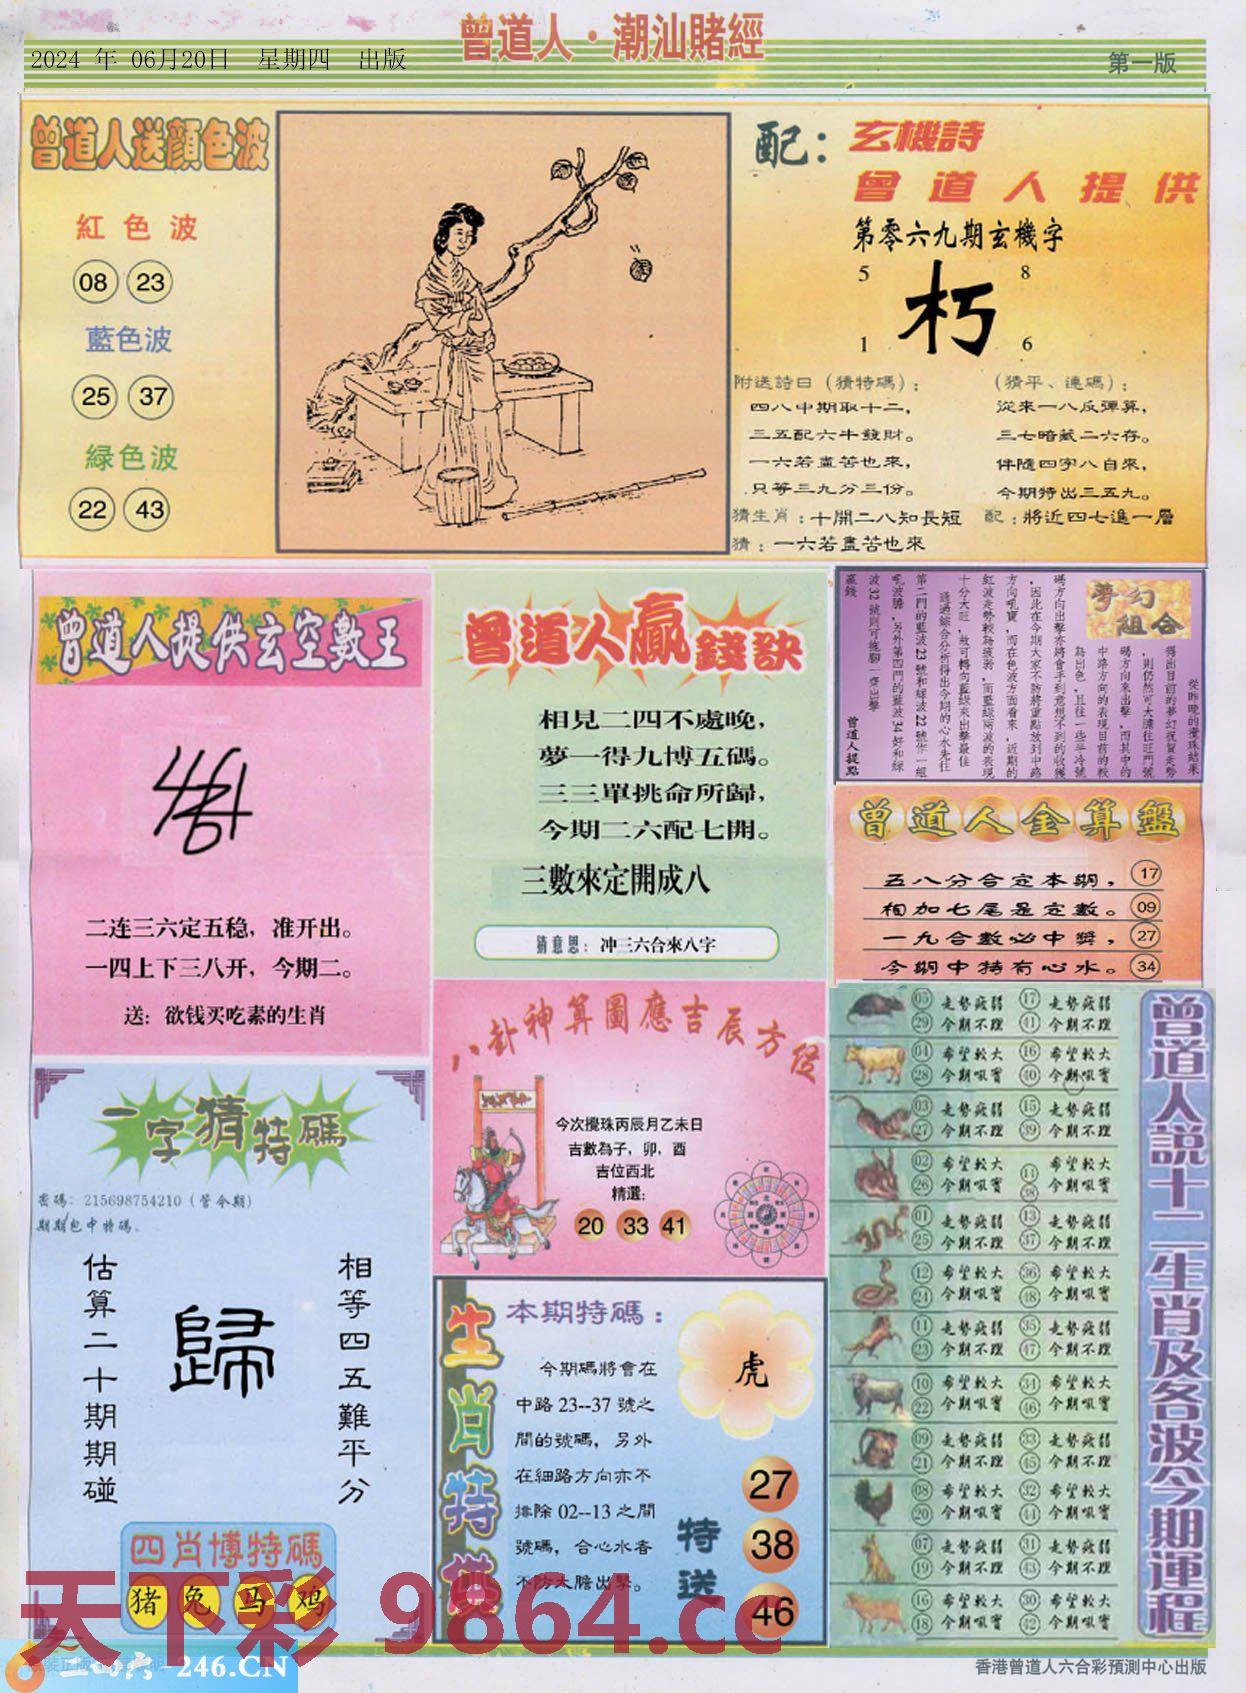 曾道人·潮汕賭經
2024 年 06月20日 星期四 出版
第一版
曾道人送顔色波
紅色波
08 23
藍色波
25 37
緑色波
22 43
配：玄機詩
曾道人提供
第零六九期玄機字
5 8
朽
1 6
附送詩曰（猜特碼）：
四八中期取十二，
三五配六牛發財。
一六若盡苦也來，
只等三九分三份。
（猜平、連碼）：
從來一八反彈算，
三七暗藏二六存。
伴隨四字八自來，
今期特出三五九。
猜生肖：十開二八知長短 配：將近四七進一層
猜：一六若盡苦也來
曾道人提供玄空數王
二连三六定五稳，准开出。
一四上下三八开，今期二。
送：欲钱买吃素的生肖
曾道人贏錢訣
相見二四不處晚，
夢一得九博五碼。
三三單挑命所歸，
今期二六配七開。
三數來定開成八
猜意思：冲三六合來八字
夢幻
組合
從昨晚的攪珠結果
得出目前的夢幻祝賀走勢
，則仍然可大膽往旺門號
碼方向來出擊，而其中的
中路方向的表現目前的較
為出色，且往一些半冷號
碼方向出擊亦將會手到意想不到的收獲
，因此在今期大家不防將重點放到中路
方向吼寶，而在色波方面看來，近期的
紅波走勢較為疲弱，而藍綠兩波的表現
十分大旺，故可轉向藍綠來出擊最佳
透過綜合分析得出今期的心水先往
第二門的藍波23號和綠波22號作一組
吼波膽，另外第四門的藍波34好和綠
波32號則可拖腳一齊出擊
贏錢
曾道人提點
曾道人金算盤
五八分合定本期， 17
相加七尾是定數。 09
一九合數必中獎， 27
今期中特有心水。 34
八卦神算圖應吉辰方位
今次攪珠丙辰月乙未日
吉數為子，卯，酉
吉位西北
精選：
20 33 41
一字猜特碼
密碼：215698754210（管今期）
期期包中特碼.
相等四五難平分
歸
估算二十期期碰
四肖博特碼
猪 兔 马 鸡
生肖特供
本期特碼：
今期碼將會在
中路23--37 號之
間的號碼，另外
在細路方向亦不
排除02--13之間
號碼，合心水者
不防大膽出擊。
虎
特送
27
38
46
曾道人説十二生肖及各波今期運程
05 走勢疲弱 17 走勢疲弱
29 今期不理 41 今期不理
04 希望較大 16 希望較大
28 今期吼寶 40 今期吼寶
03 走勢疲弱 15 走勢疲弱
27 今期不理 39 今期不理
02 希望較大 14 希望較大
26 今期吼寶 38 今期吼寶
01 走勢疲弱 13 走勢疲弱
25 今期不理 37 今期不理
12 希望較大 36 希望較大
24 今期吼寶 48 今期吼寶
11 走勢疲弱 35 走勢疲弱
23 今期不理 47 今期不理
10 希望較大 34 希望較大
22 今期吼寶 46 今期吼寶
09 走勢疲弱 33 走勢疲弱
21 今期不理 45 今期不理
08 希望較大 32 希望較大
20 今期吼寶 44 今期吼寶
07 走勢疲弱 31 走勢疲弱
19 今期不理 43 今期不理
16 希望較大 30 希望較大
18 今期吼寶 42 今期吼寶
天下彩 9864.cc
二四六-246.CN
香港曾道人六合彩預測中心出版